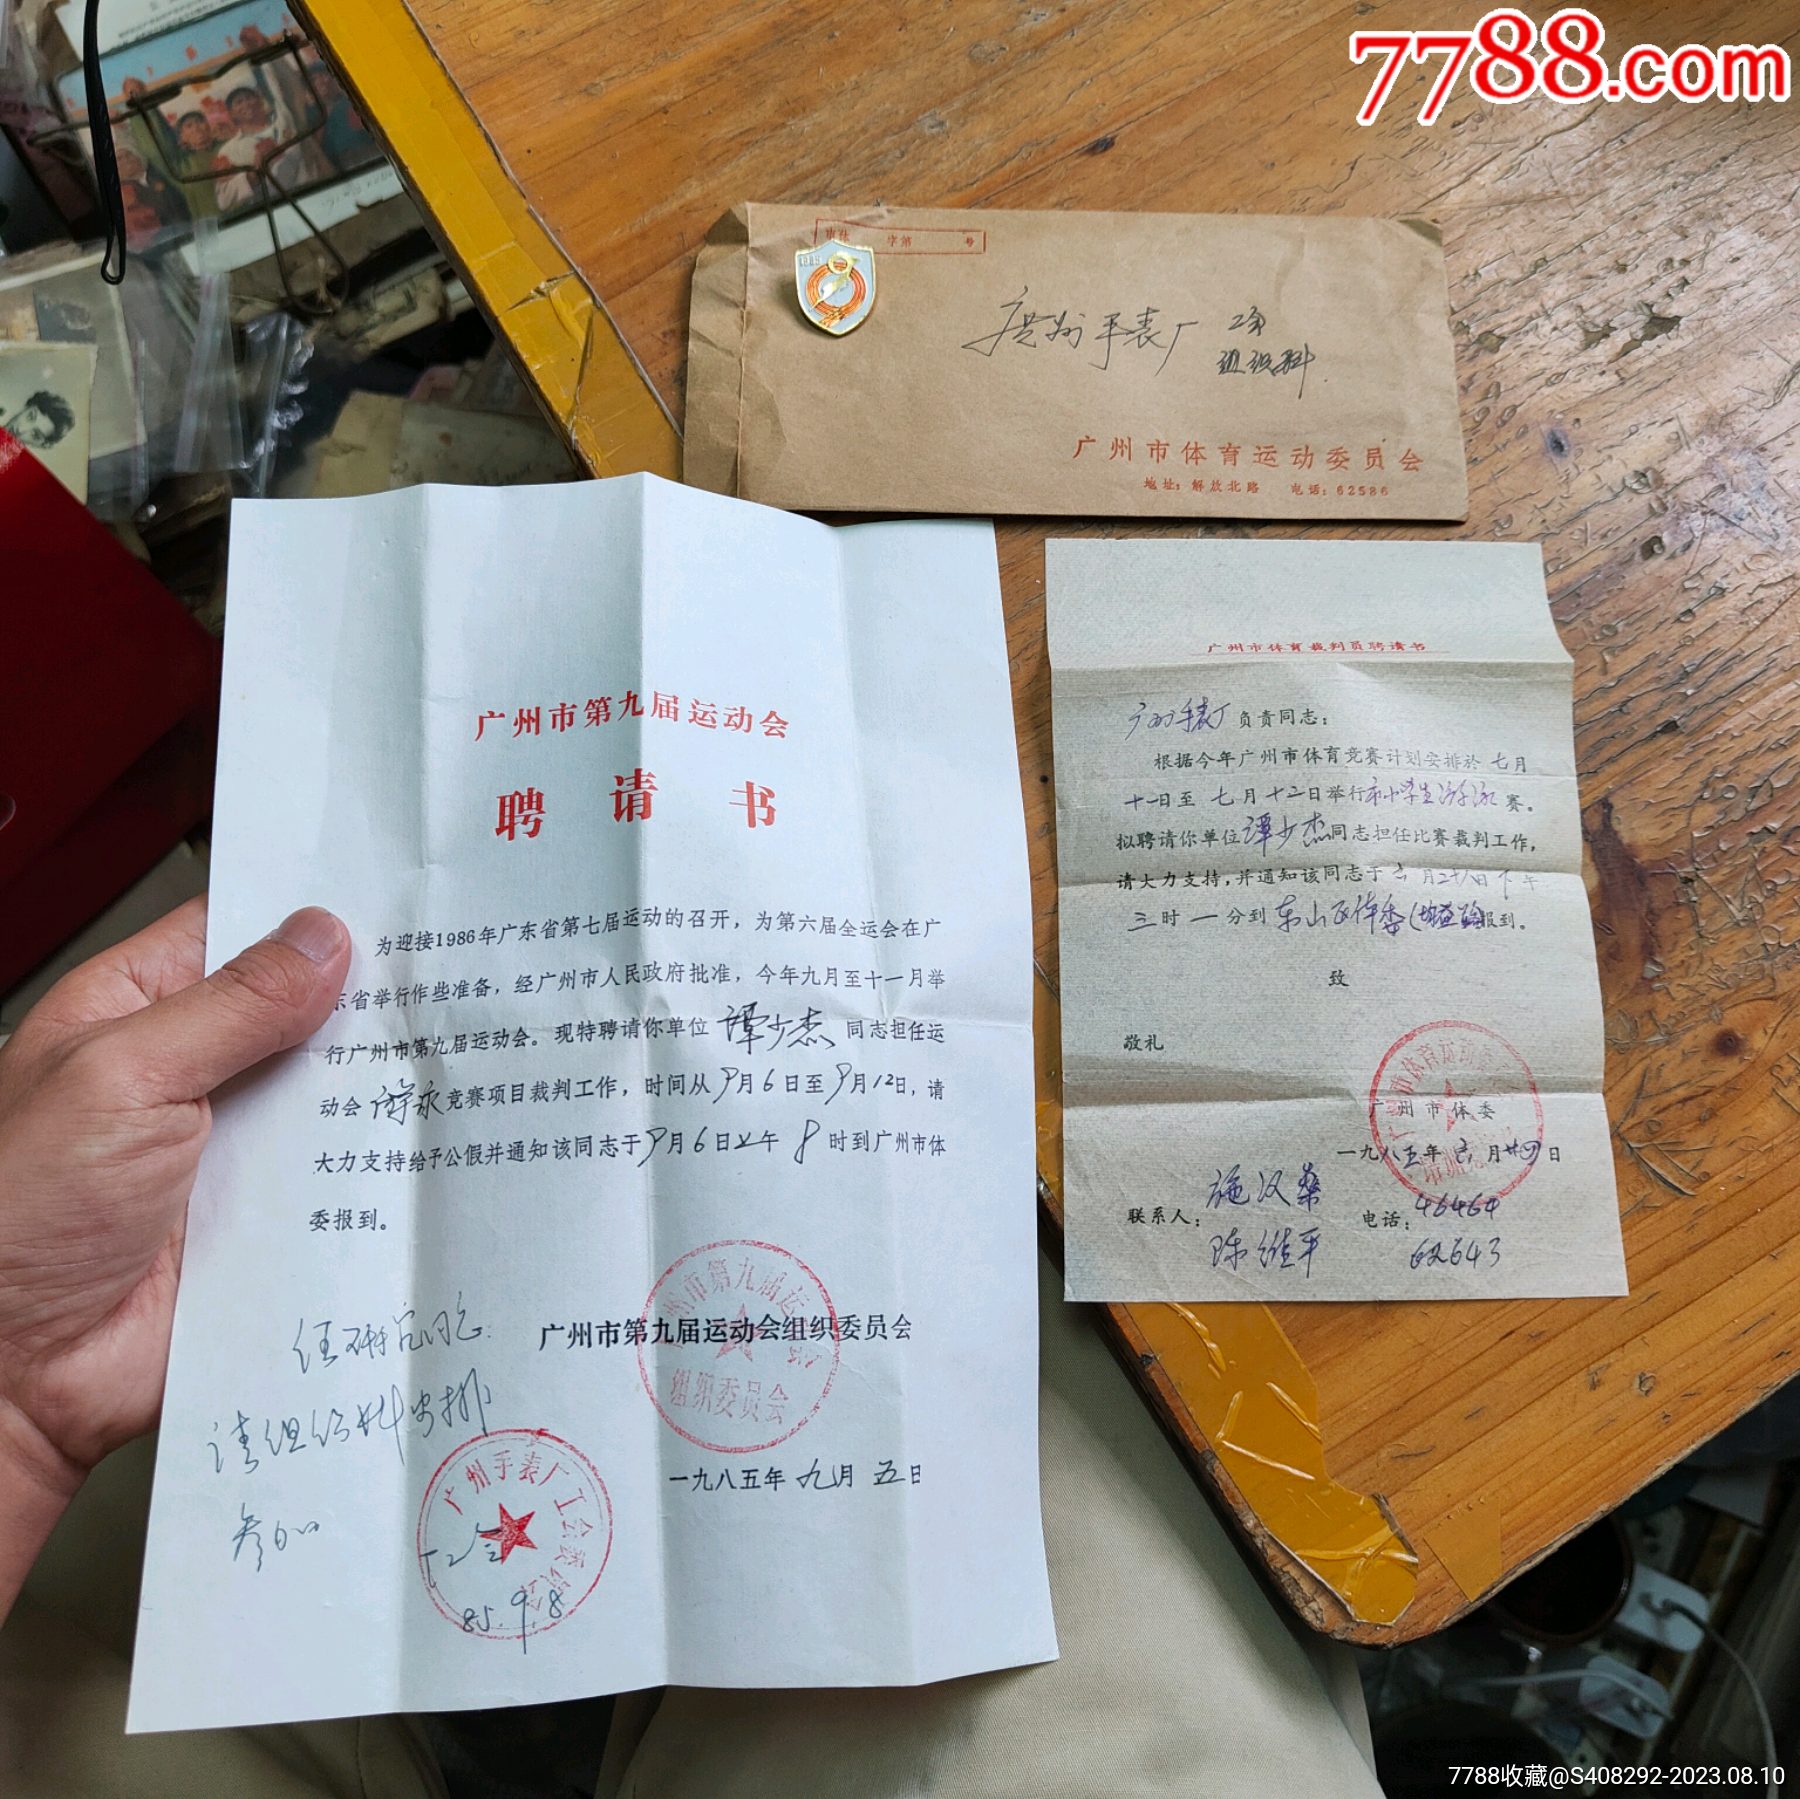 7788.com
市体 字第 号
1985
广州手表厂 工会
组织科
广州市体育运动委员会
地址：解放北路 电话：62586
广州市第九届运动会
聘请书
为迎接1986年广东省第七届运动的召开，为第六届全运会在广
东省举行作些准备，经广州市人民政府批准，今年九月至十一月举
行广州市第九届运动会。现特聘请你单位 谭少杰 同志担任运
动会 游泳 竞赛项目裁判工作，时间从9月6日至9月12日，请
大力支持给予公假并通知该同志于9月6日上午 8 时到广州市体
委报到。
广州市第九届运动会组织委员会
广州市第九届运动会
组织委员会
一九八五年 九月 五日
同志：
请组织科安排
参加
广州手表厂工会委员会
85.9.8
广州市体育裁判员聘请书
广州手表厂 负责同志：
根据今年广州市体育竞赛计划安排於 七月
十一日至 七月十二日举行市小学生游泳 赛。
拟聘请你单位谭少杰同志担任比赛裁判工作，
请大力支持，并通知该同志于六月二十八日下午
三时 一 分到 东山区体委 报到。
致
敬礼
广州市体委
一九八五年 六 月廿四日
联系人： 施汉桑 电话：46464
陈维平
7788收藏@S408292-2023.08.10